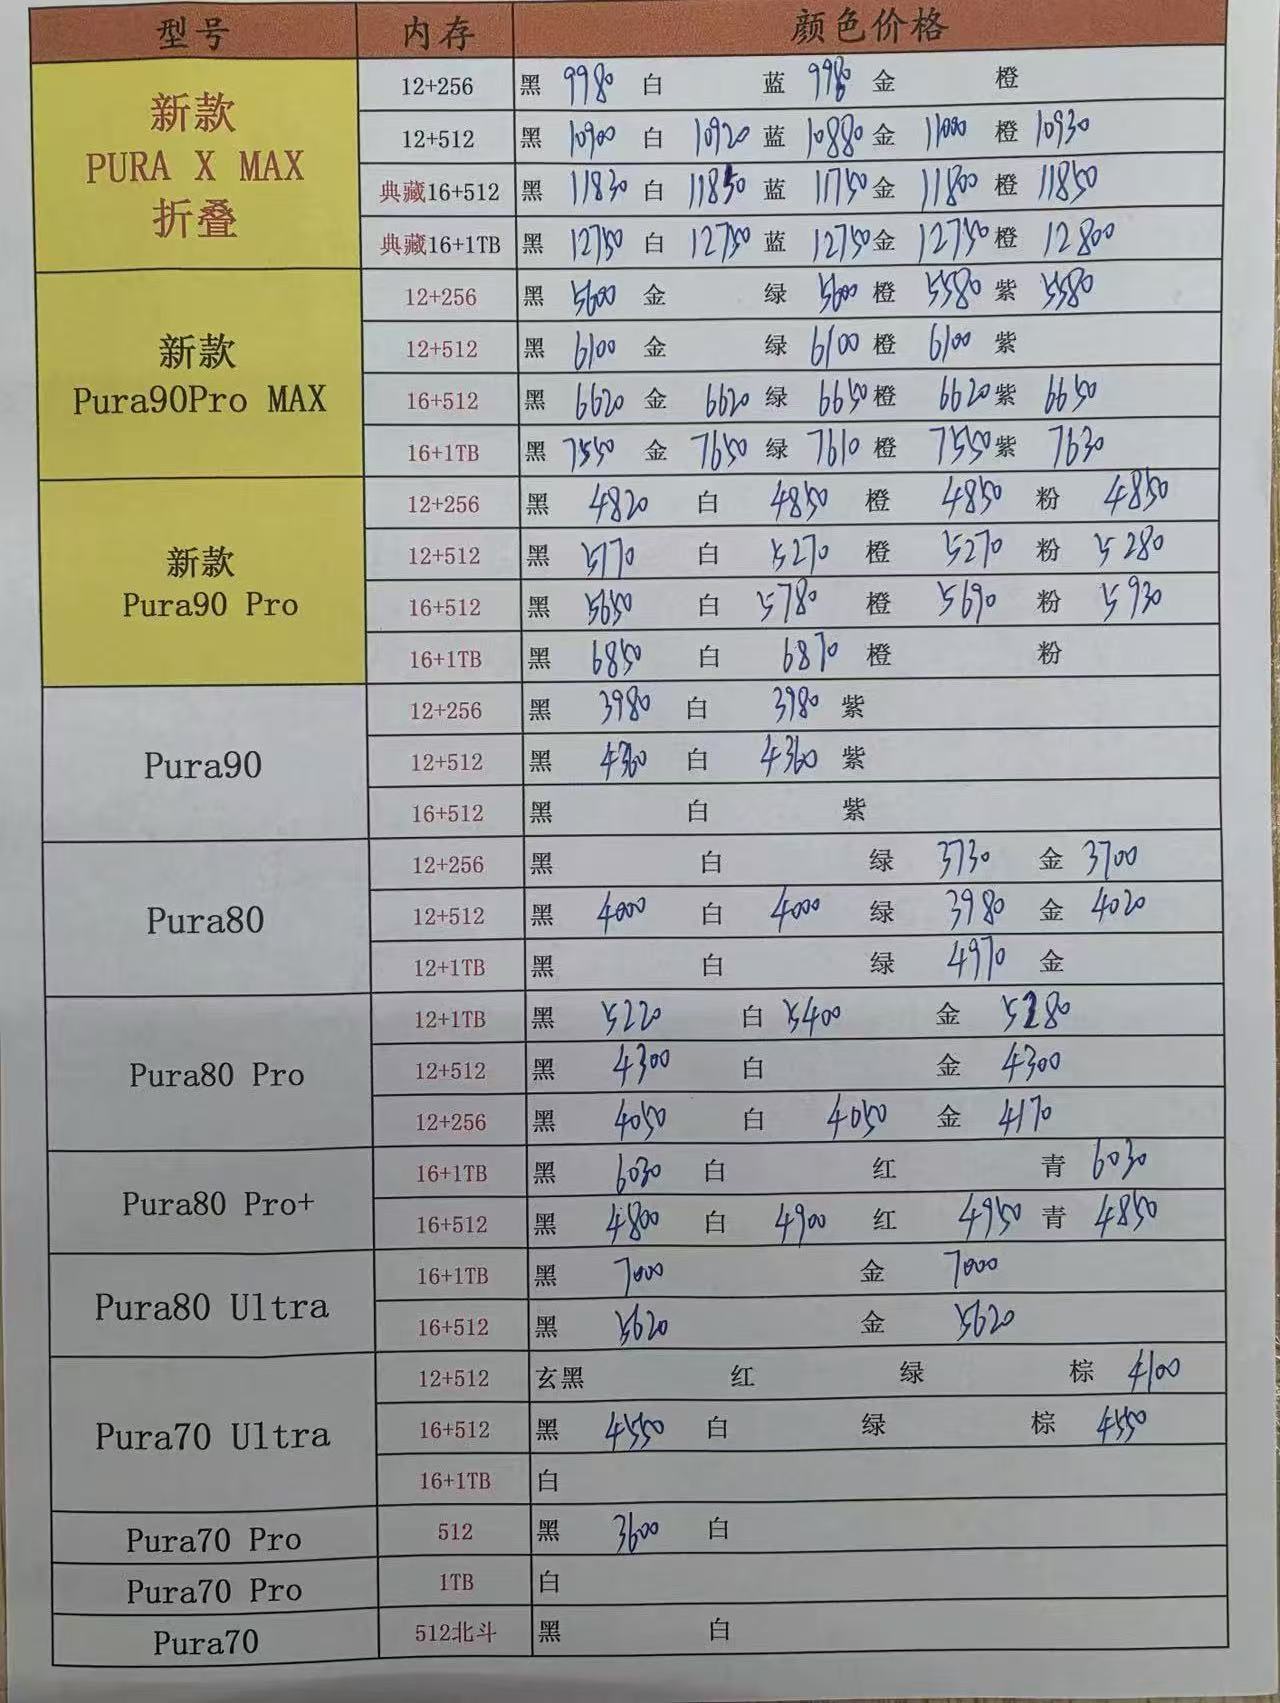 型号 内存 颜色价格
新款 PURA X MAX 折叠
12+256 黑 9980 白 蓝 9980 金 橙
12+512 黑 10900 白 10920 蓝 10880 金 11000 橙 10930
典藏16+512 黑 11830 白 11850 蓝 11750 金 11800 橙 11850
典藏16+1TB 黑 12750 白 12750 蓝 12750 金 12750 橙 12800
新款 Pura90Pro MAX
12+256 黑 5600 金 绿 5600 橙 5580 紫 5580
12+512 黑 6100 金 绿 6100 橙 6100 紫
16+512 黑 6620 金 6620 绿 6650 橙 6620 紫 6650
16+1TB 黑 7550 金 7650 绿 7610 橙 7550 紫 7630
新款 Pura90 Pro
12+256 黑 4820 白 4850 橙 4850 粉 4850
12+512 黑 5170 白 5270 橙 5270 粉 5280
16+512 黑 5650 白 5780 橙 5690 粉 5930
16+1TB 黑 6850 白 6870 橙 粉
Pura90
12+256 黑 3980 白 3980 紫
12+512 黑 4360 白 4360 紫
16+512 黑 白 紫
Pura80
12+256 黑 白 绿 3730 金 3700
12+512 黑 4000 白 4000 绿 3980 金 4020
12+1TB 黑 白 绿 4970 金
Pura80 Pro
12+1TB 黑 5220 白 5400 金 5280
12+512 黑 4300 白 金 4300
12+256 黑 4050 白 4050 金 4170
Pura80 Pro+
16+1TB 黑 6030 白 红 青 6030
16+512 黑 4800 白 4900 红 4950 青 4850
Pura80 Ultra
16+1TB 黑 7000 金 7000
16+512 黑 5620 金 5620
Pura70 Ultra
12+512 玄黑 红 绿 棕 4100
16+512 黑 4550 白 绿 棕 4550
16+1TB 白
Pura70 Pro 512 黑 3600 白
Pura70 Pro 1TB 白
Pura70 512北斗 黑 白